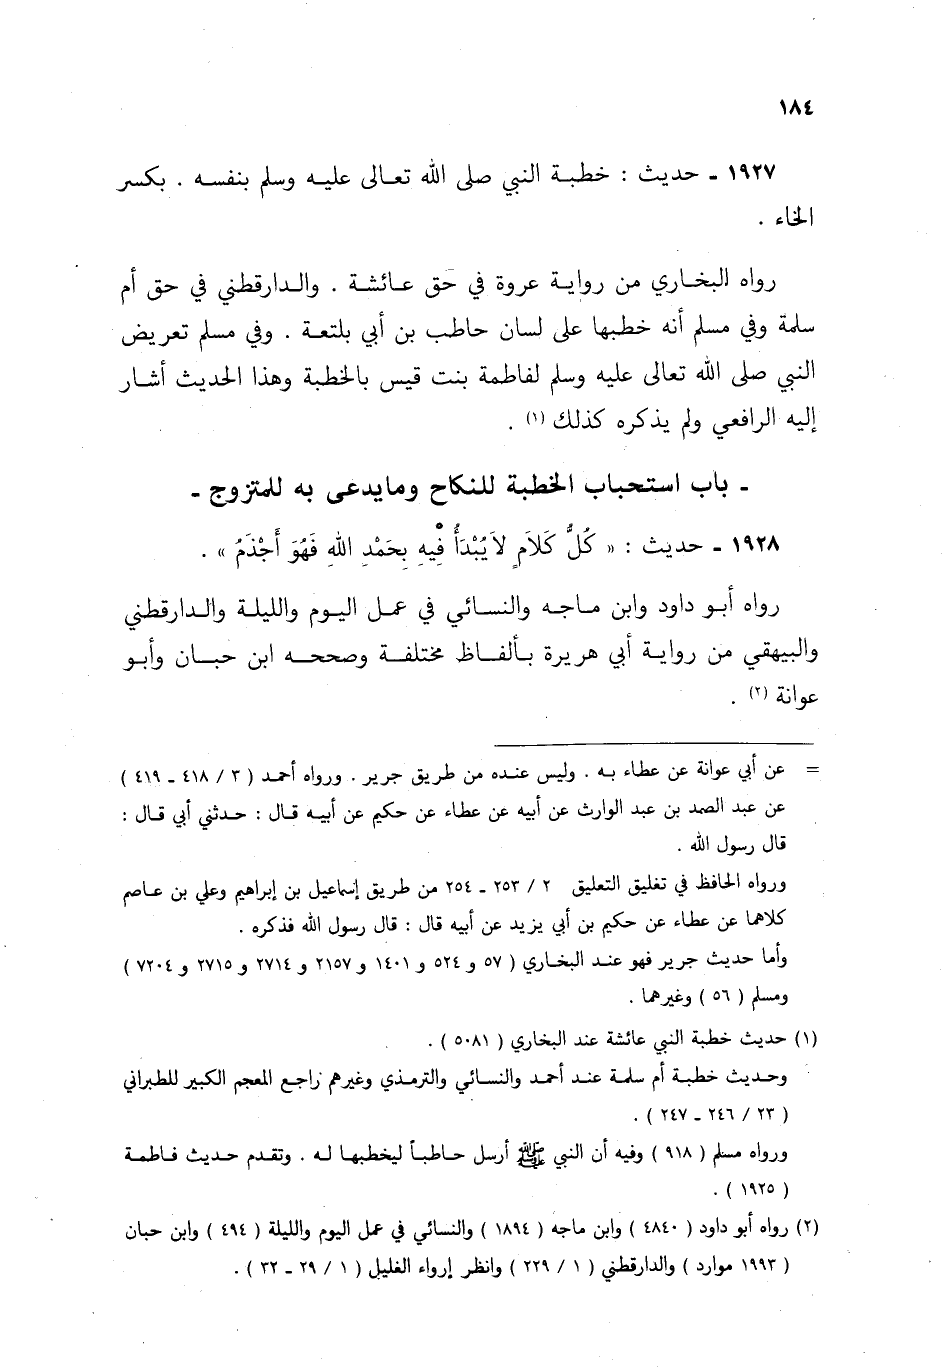 ١٨٤
١٩٢٧ ـ حديث : خطبة النبي صلى الله تعالى عليه وسلم بنفسه . بكسر
الخاء .
رواه البخاري من رواية عروة في حق عائشة . والدارقطني في حق أم
سلمة وفي مسلم أنه خطبها على لسان حاطب بن أبي بلتعة . وفي مسلم تعريض
النبي صلى الله تعالى عليه وسلم لفاطمة بنت قيس بالخطبة وهذا الحديث أشار
إليه الرافعي ولم يذكره كذلك (١) .
ـ باب استحباب الخطبة للنكاح ومايدعى به للمتزوج ـ
١٩٢٨ ـ حديث : « كُلُّ كَلَامٍ لَايُبْدَأُ فِيهِ بِحَمْدِ اللهِ فَهُوَ أَجْذَمُ » .
رواه أبو داود وابن ماجه والنسائي في عمل اليوم والليلة والدارقطني
والبيهقي من رواية أبي هريرة بألفاظ مختلفة وصححه ابن حبان وأبو
عوانة (٢) .
= عن أبي عوانة عن عطاء به . وليس عنده من طريق جرير . ورواه أحمد ( ٣ / ٤١٨ ـ ٤١٩ )
عن عبد الصمد بن عبد الوارث عن أبيه عن عطاء عن حكيم عن أبيه قال : حدثني أبي قال :
قال رسول الله .
ورواه الحافظ في تغليق التعليق ٢ / ٢٥٣ ـ ٢٥٤ من طريق إسماعيل بن إبراهيم وعلي بن عاصم
كلاهما عن عطاء عن حكيم بن أبي يزيد عن أبيه قال : قال رسول الله فذكره .
وأما حديث جرير فهو عند البخاري ( ٥٧ و ٥٢٤ و ١٤٠١ و ٢١٥٧ و ٢٧١٤ و ٢٧١٥ و ٧٢٠٤ )
ومسلم ( ٥٦ ) وغيرهما .
(١) حديث خطبة النبي عائشة عند البخاري ( ٥٠٨١ ) .
وحديث خطبة أم سلمة عند أحمد والنسائي والترمذي وغيرهم راجع المعجم الكبير للطبراني
( ٢٣ / ٢٤٦ ـ ٢٤٧ ) .
ورواه مسلم ( ٩١٨ ) وفيه أن النبي ﷺ أرسل حاطباً ليخطبها له . وتقدم حديث فاطمة
( ١٩٢٥ ) .
(٢) رواه أبو داود ( ٤٨٤٠ ) وابن ماجه ( ١٨٩٤ ) والنسائي في عمل اليوم والليلة ( ٤٩٤ ) وابن حبان
( ١٩٩٣ موارد ) والدارقطني ( ١ / ٢٢٩ ) وانظر إرواء الغليل ( ١ / ٢٩ ـ ٣٢ ) .